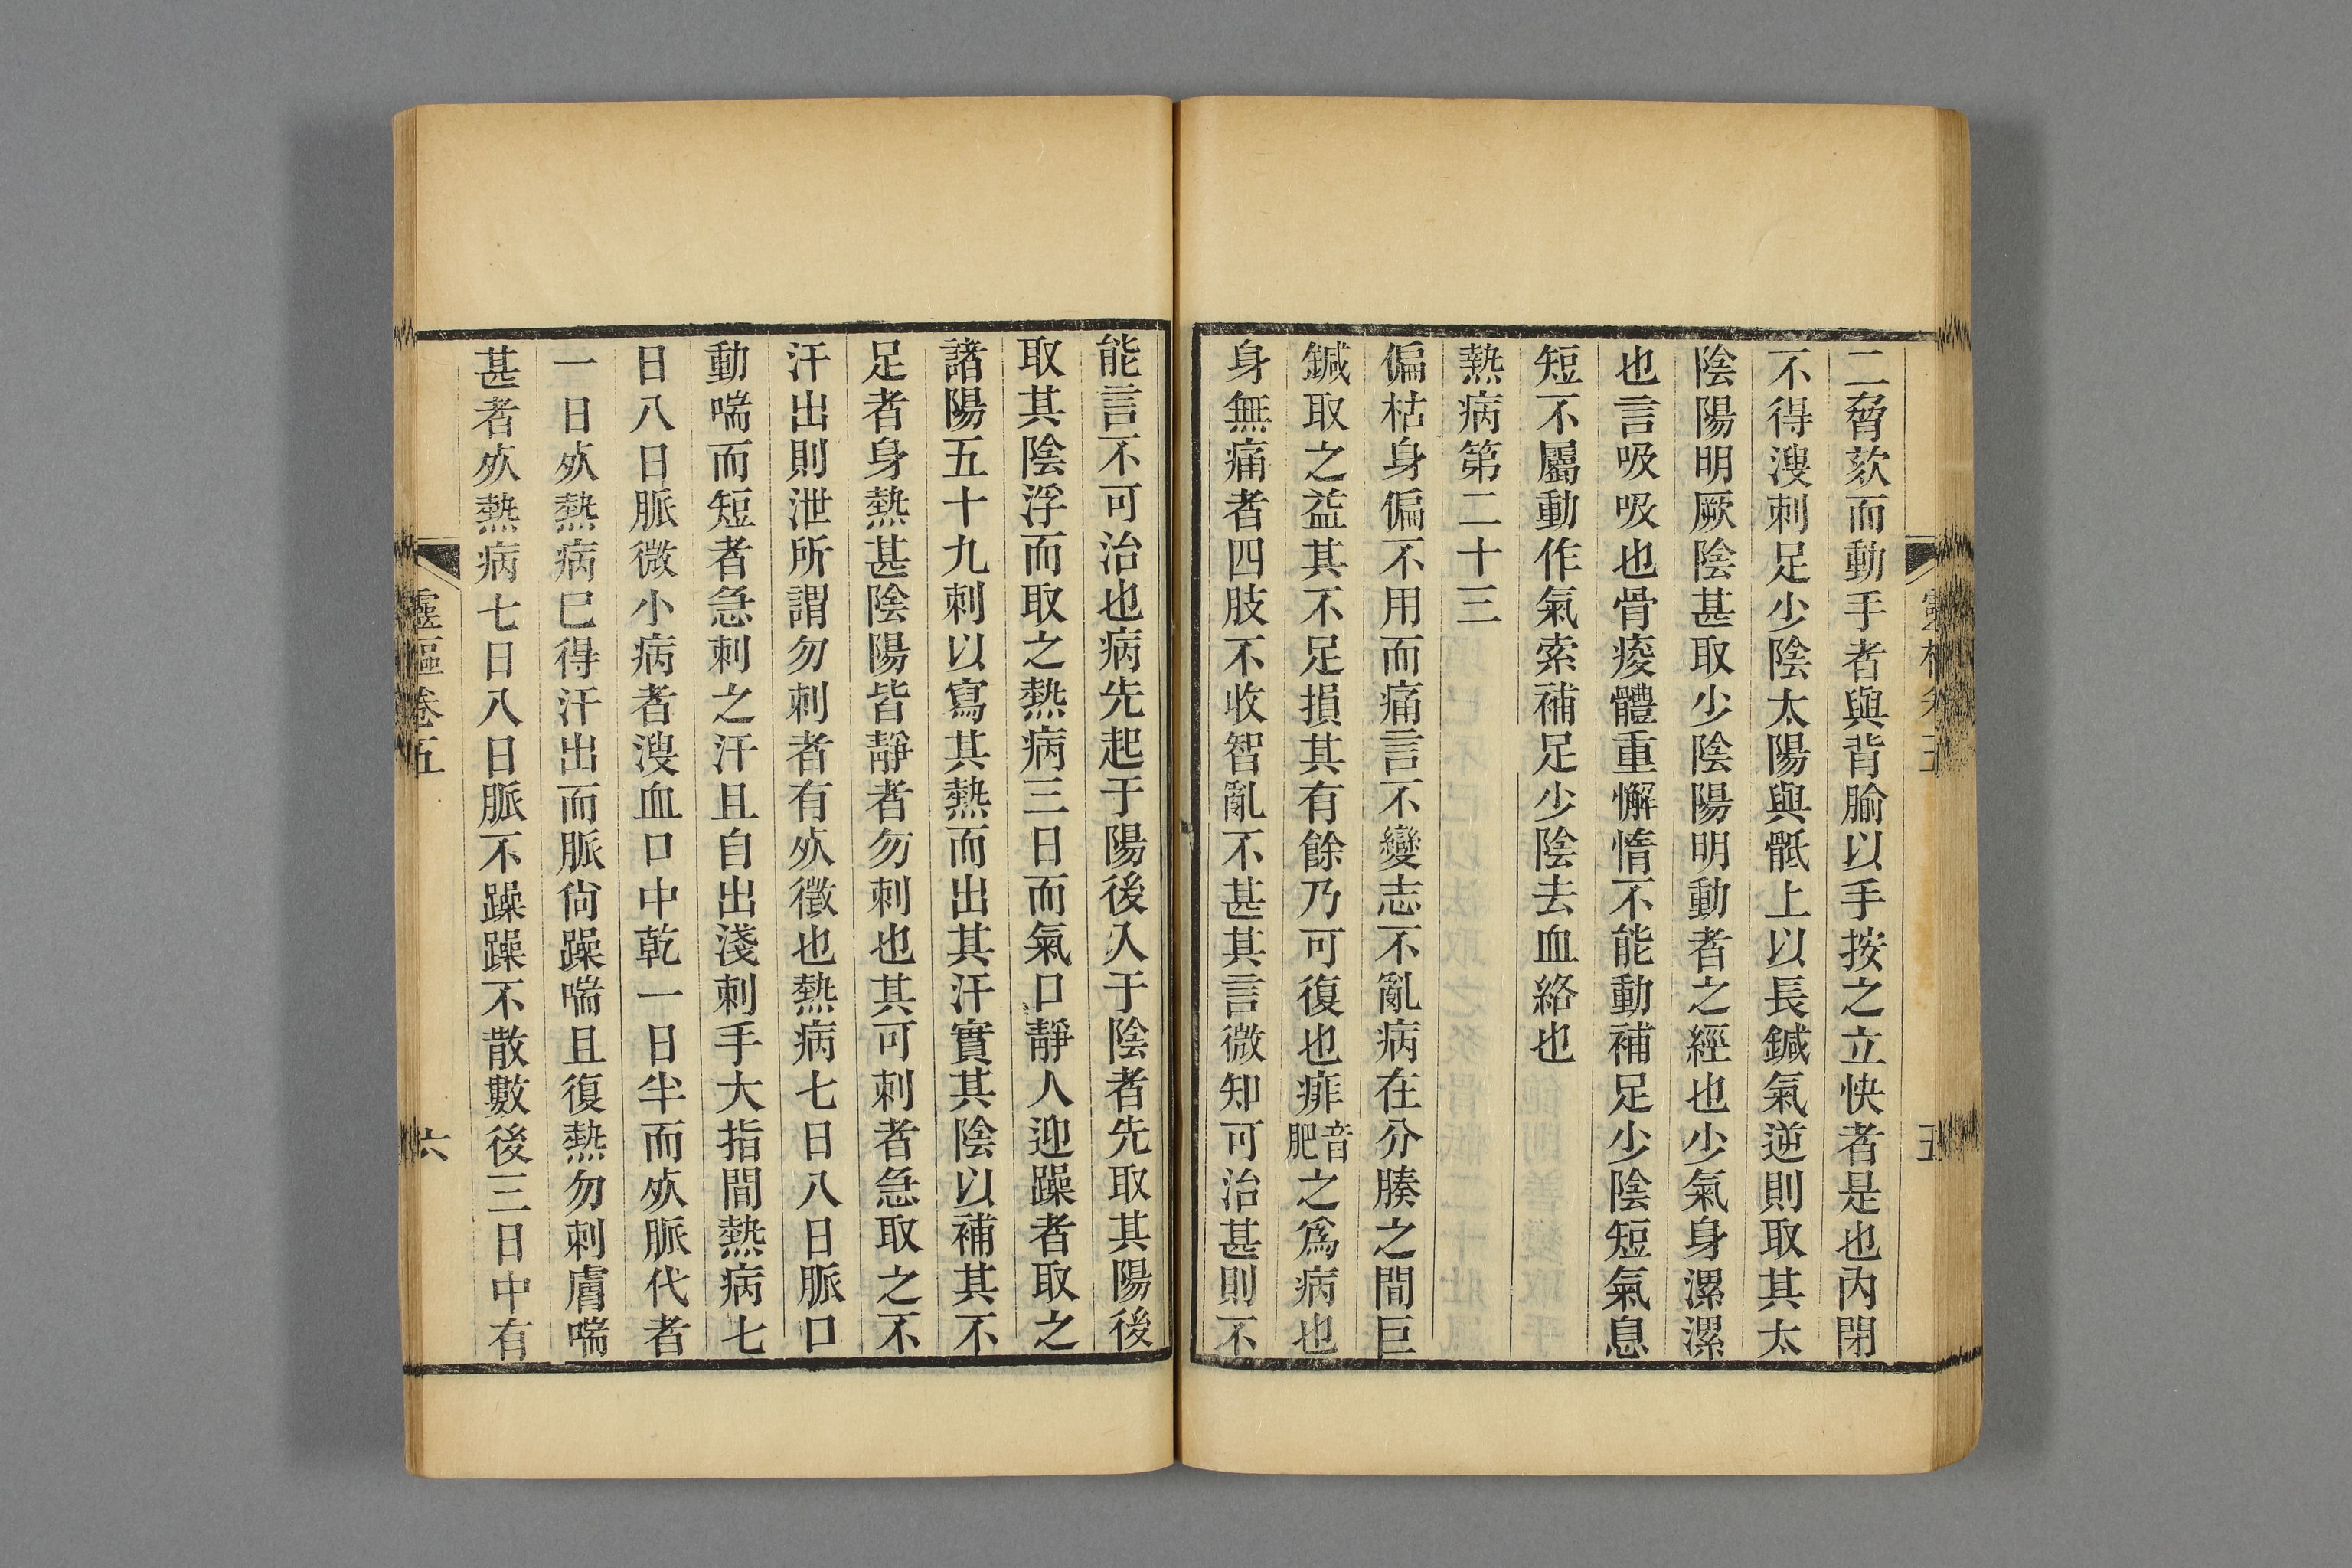 二脅欬而動手者與背腧以手按之立快者是也內閉
不得溲刺足少陰太陽與骶上以長鍼氣逆則取其太
陰陽明厥陰甚取少陰陽明動者之經也少氣身漯漯
也言吸吸也骨痠體重懈惰不能動補足少陰短氣息
短不屬動作氣索補足少陰去血絡也
熱病第二十三
偏枯身偏不用而痛言不變志不亂病在分腠之間巨
鍼取之益其不足損其有餘乃可復也痱音肥之爲病也
身無痛者四肢不收智亂不甚其言微知可治甚則不
能言不可治也病先起于陽後入于陰者先取其陽後
取其陰浮而取之熱病三日而氣口靜人迎躁者取之
諸陽五十九刺以寫其熱而出其汗實其陰以補其不
足者身熱甚陰陽皆靜者勿刺也其可刺者急取之不
汗出則泄所謂勿刺者有㱡徵也熱病七日八日脈口
動喘而短者急刺之汗且自出淺刺手大指間熱病七
日八日脈微小病者溲血口中乾一日半而㱡脈代者
一日㱡熱病已得汗出而脈尙躁喘且復熱勿刺膚喘
甚者㱡熱病七日八日脈不躁躁不散數後三日中有
靈樞卷五
六